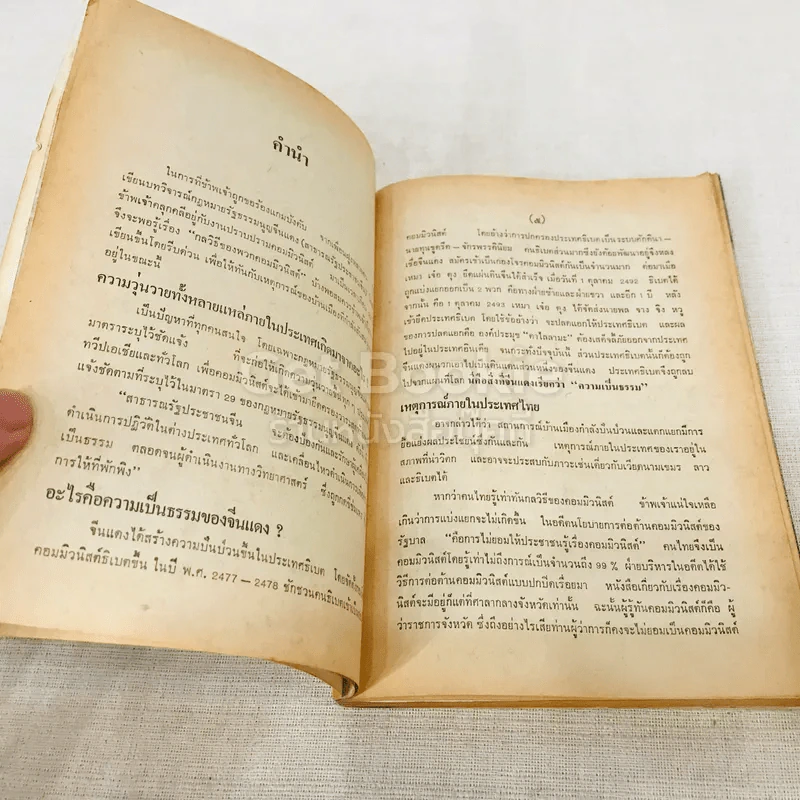 คำนำ
ในการที่ข้าพเจ้าถูกขอร้องแกมบังคับ
เขียนบทวิจารณ์กฎหมายรัฐธรรมนูญจีนแดง
ข้าพเจ้าคลุกคลีอยู่กับงานปราบปรามคอมมิวนิสต์
จึงจะพอรู้เรื่อง “กลวิธีของพวกคอมมิวนิสต์”
เขียนขึ้นโดยรีบด่วน เพื่อให้ทันกับเหตุการณ์ของบ้านเมือง
อยู่ในขณะนี้
ความวุ่นวายทั้งหลายแหล่ภายในประเทศเกิดมาจากอะไร
เป็นปัญหาที่ทุกคนสนใจ โดยเฉพาะกฎหมายรัฐธรรมนูญจีนแดง
มาตราระบุไว้ชัดแจ้ง ที่จะก่อให้เกิดความวุ่นวาย
ทวีปเอเซียและทั่วโลก เพื่อคอมมิวนิสต์จะได้เข้ามายึดครอง
แจ้งชัดตามที่ระบุไว้ในมาตรา 29 ของกฎหมายรัฐธรรมนูญจีนแดง
“สาธารณรัฐประชาชนจีน ต้องป้องกันและรักษา
ดำเนินการปฏิวัติในต่างประเทศทั่วโลก และเคลื่อนไหวดำเนินการ
เป็นธรรม ตลอดจนผู้ดำเนินงานทางวิทยาศาสตร์ ซึ่งถูกกดขี่
การให้ที่พักพิง”
อะไรคือความเป็นธรรมของจีนแดง ?
จีนแดงได้สร้างความปั่นป่วนขึ้นในประเทศธิเบต
คอมมิวนิสต์ธิเบตขึ้น ในปี พ.ศ. 2477 — 2478 ชักชวนคนธิเบตเข้า
(๕)
คอมมิวนิสต์ โดยอ้างว่าการปกครองประเทศธิเบตเป็นระบบศักดินา-
นาลทุนขูดรีด — จักรพรรดินิยม คนธิเบตส่วนมากซึ่งยังด้อยพัฒนาอยู่จึงหลง
เชื่อจีนแดง สมัครเข้าเป็นกองโจรคอมมิวนิสต์กันเป็นจำนวนมาก ต่อมาเมื่อ
เหมา เจ๋อ ตุง ยึดแผ่นดินจีนได้สำเร็จ เมื่อวันที่ 1 ตุลาคม 2492 ธิเบตได้
ถูกแบ่งแยกออกเป็น 2 พวก คือทางฝ่ายซ้ายและฝ่ายขวา และอีก 1 ปี หลัง
จากนั้น คือ 1 ตุลาคม 2493 เหมา เจ๋อ ตุง ได้จัดส่งนายพล จาง จิง หวู
เข้ายึดประเทศธิเบต โดยใช้ข้ออ้างว่า จะปลดแอกให้ประเทศธิเบต และผล
ของการปลดแอกคือ องค์ประมุข “ดาไลลามะ” ต้องเสด็จลี้ภัยออกจากประเทศ
ไปอยู่ในประเทศอินเดีย จนกระทั่งปัจจุบันนี้ ส่วนประเทศธิเบตนั้นก็ต้องถูก
จีนแดงผนวกเอาไปเป็นดินแดนส่วนหนึ่งของจีนแดง ประเทศธิเบตจึงถูกลบ
ไปจากแผนที่โลก นี่คือสิ่งที่จีนแดงเรียกว่า “ความเป็นธรรม”
เหตุการณ์ภายในประเทศไทย
อาจกล่าวได้ว่า สถานการณ์บ้านเมืองกำลังปั่นป่วนและแตกแยกมีการ
ยื้อแย่งผลประโยชน์ซึ่งกันและกัน เหตุการณ์ภายในประเทศของเราอยู่ใน
สภาพที่น่าวิตก และอาจจะประสบกับภาวะเช่นเดียวกับเวียดนามเขมร ลาว
และธิเบตได้
หากว่าคนไทยรู้เท่าทันกลวิธีของคอมมิวนิสต์ ข้าพเจ้าแน่ใจเหลือ
เกินว่าการแบ่งแยกจะไม่เกิดขึ้น ในอดีตนโยบายการต่อต้านคอมมิวนิสต์ของ
รัฐบาล “คือการไม่ยอมให้ประชาชนรู้เรื่องคอมมิวนิสต์” คนไทยจึงเป็น
คอมมิวนิสต์โดยรู้เท่าไม่ถึงการณ์เป็นจำนวนถึง 99 % ฝ่ายบริหารในอดีตได้ใช้
วิธีการต่อต้านคอมมิวนิสต์แบบปกปิดเรื่อยมา หนังสือเกี่ยวกับเรื่องคอมมิว-
นิสต์จะมีอยู่ก็แต่ที่ศาลากลางจังหวัดเท่านั้น ฉะนั้นผู้รู้ทันคอมมิวนิสต์ก็คือ ผู้
ว่าราชการจังหวัด ซึ่งถึงอย่างไรเสียท่านผู้ว่าการก็คงจะไม่ยอมเป็นคอมมิวนิสต์